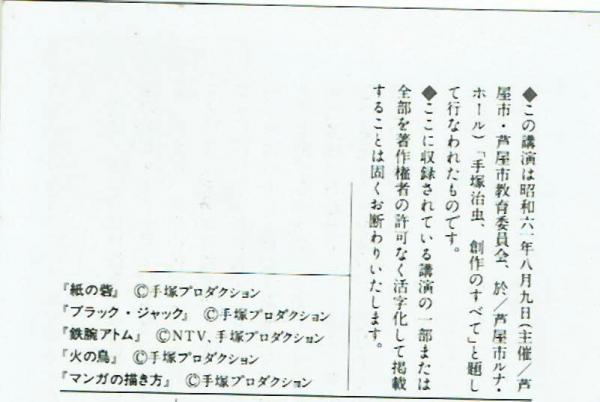 ◆この講演は昭和六一年八月九日(主催/芦
屋市・芦屋市教育委員会、於/芦屋市ルナ・
ホール)「手塚治虫、創作のすべて」と題し
て行なわれたものです。
◆ここに収録されている講演の一部または
全部を著作権者の許可なく活字化して掲載
することは固くお断わりいたします。
『紙の砦』 ©手塚プロダクション
『ブラック・ジャック』 ©手塚プロダクション
『鉄腕アトム』 ©NTV、手塚プロダクション
『火の鳥』 ©手塚プロダクション
『マンガの描き方』 ©手塚プロダクション